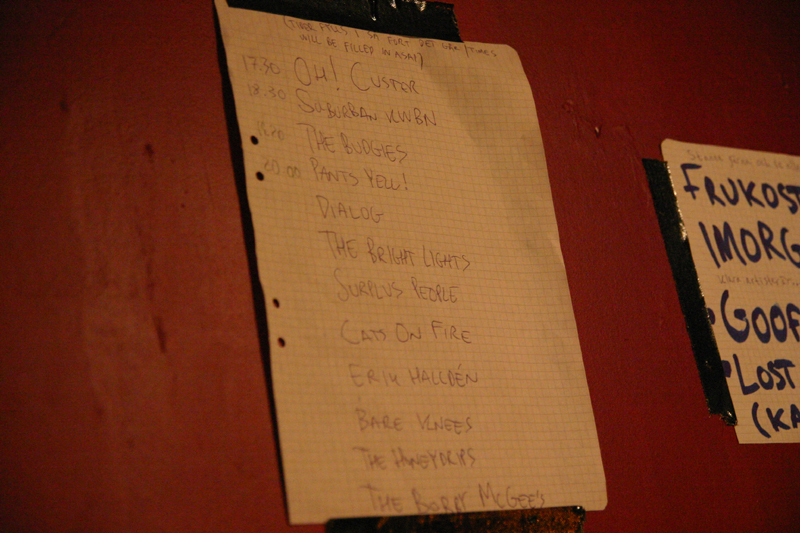 WILL BE FILLED IN ASAP)
17.30 OH! CUSTER
18.30 SUBURBAN KWBN
THE BUDGIES
20.00 PANTS YELL!
DIALOG
THE BRIGHT LIGHTS
SURPLUS PEOPLE
CATS ON FIRE
ERIK HALLDÉN
BARE KNEES
THE HONEYDRIPS
THE BOBBY MCGEE'S
FRUKOST
IMORG
GOOF
LOST
(KA